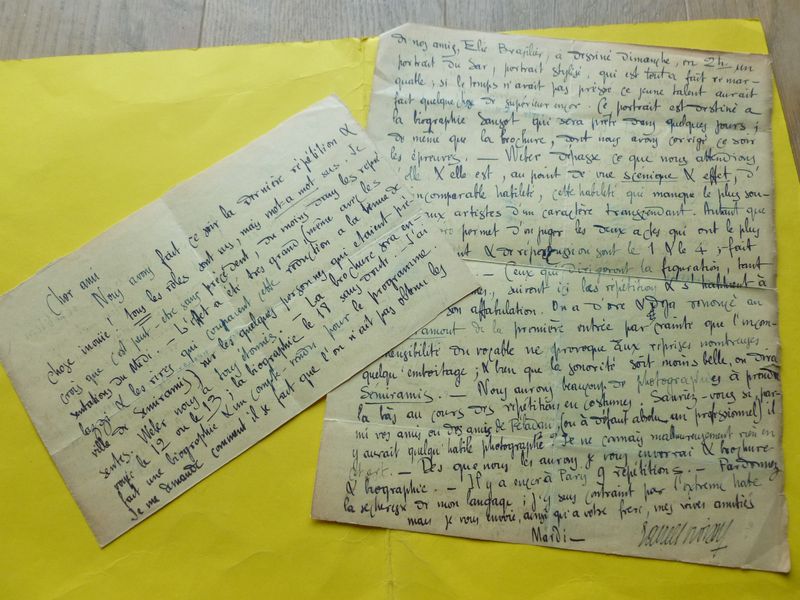 Cher ami
Nous avons fait ce soir la dernière répétition &
chose inouïe ! tous les rôles sont sus, mais mot-a-mot sus. Je
crois que c'est peut-être sans précédent, du moins dans les représ
sentations du Midi. — L'effet a été très grand (même avec les
lazzi & les rires qui coupaient cette
ville de Semiramis) sur les quelques personnes qui étaient pré-
sentes. Weber nous a tous étonnés. — La brochure sera en
le 12 ou le 13 ; la biographie le 18 sans doute. J'ai
fait une biographie & un compte-rendu pour le programme.
Je me demande comment il se fait que l'on n'ait pas obtenu les
di nos amis, Elie Brasilier, a dessiné dimanche, en 2h un
portrait du Sar, portrait stylisé, qui est tout à fait remar-
quable ; si le temps n'avait pas pressé ce jeune talent aurait
fait quelque chose de supérieur encor. Ce portrait est destiné a
la biographie Sansot qui sera prête dans quelques jours ;
de même que la brochure, dont nous avons corrigé ce soir
les épreuves. — Weber dépasse ce que nous attendions
elle & elle est, au point de vue scénique & effet, d'
incomparable habileté, cette habileté qui manque le plus sou-
aux artistes d'un caractère transcendant. Autant que
permet d'en juger les deux actes qui ont le plus
& de répercussion sont le 1 & le 4 ; fait
— Ceux qui dirigeront la figuration, tant
suivront ici les répétition & s'habituent à
son affabulation. On a d'ore & déja renoncé au
de la première entrée par crainte que l'incom-
sibilité du vocable ne provoque aux reprises nombreuses
quelqu'emboitage ; & bien que la sonorité soit moins belle, on dira
Semiramis. — Nous aurons beaucoup de photographies à prendre
la bàs au cours des répétition en costumes. Sauriez-vous si par-
mi vos amis ou des amis de Péladan (ou à défaut absolu en professionnel) il
y aurait quelqu'habile photographe ? Je ne connais malheureusement rien en
cet art. — Des que nous les aurons je vous enverrai & brochure
& biographie. — Il y a encor à Paris 9 répétitions. — Pardonnez
la sécheresse de mon langage ; j'y suis contraint par l'extreme hate
mais je vous envoie, ainsi qu'a votre frere, mes vives amitiés
Mardi —